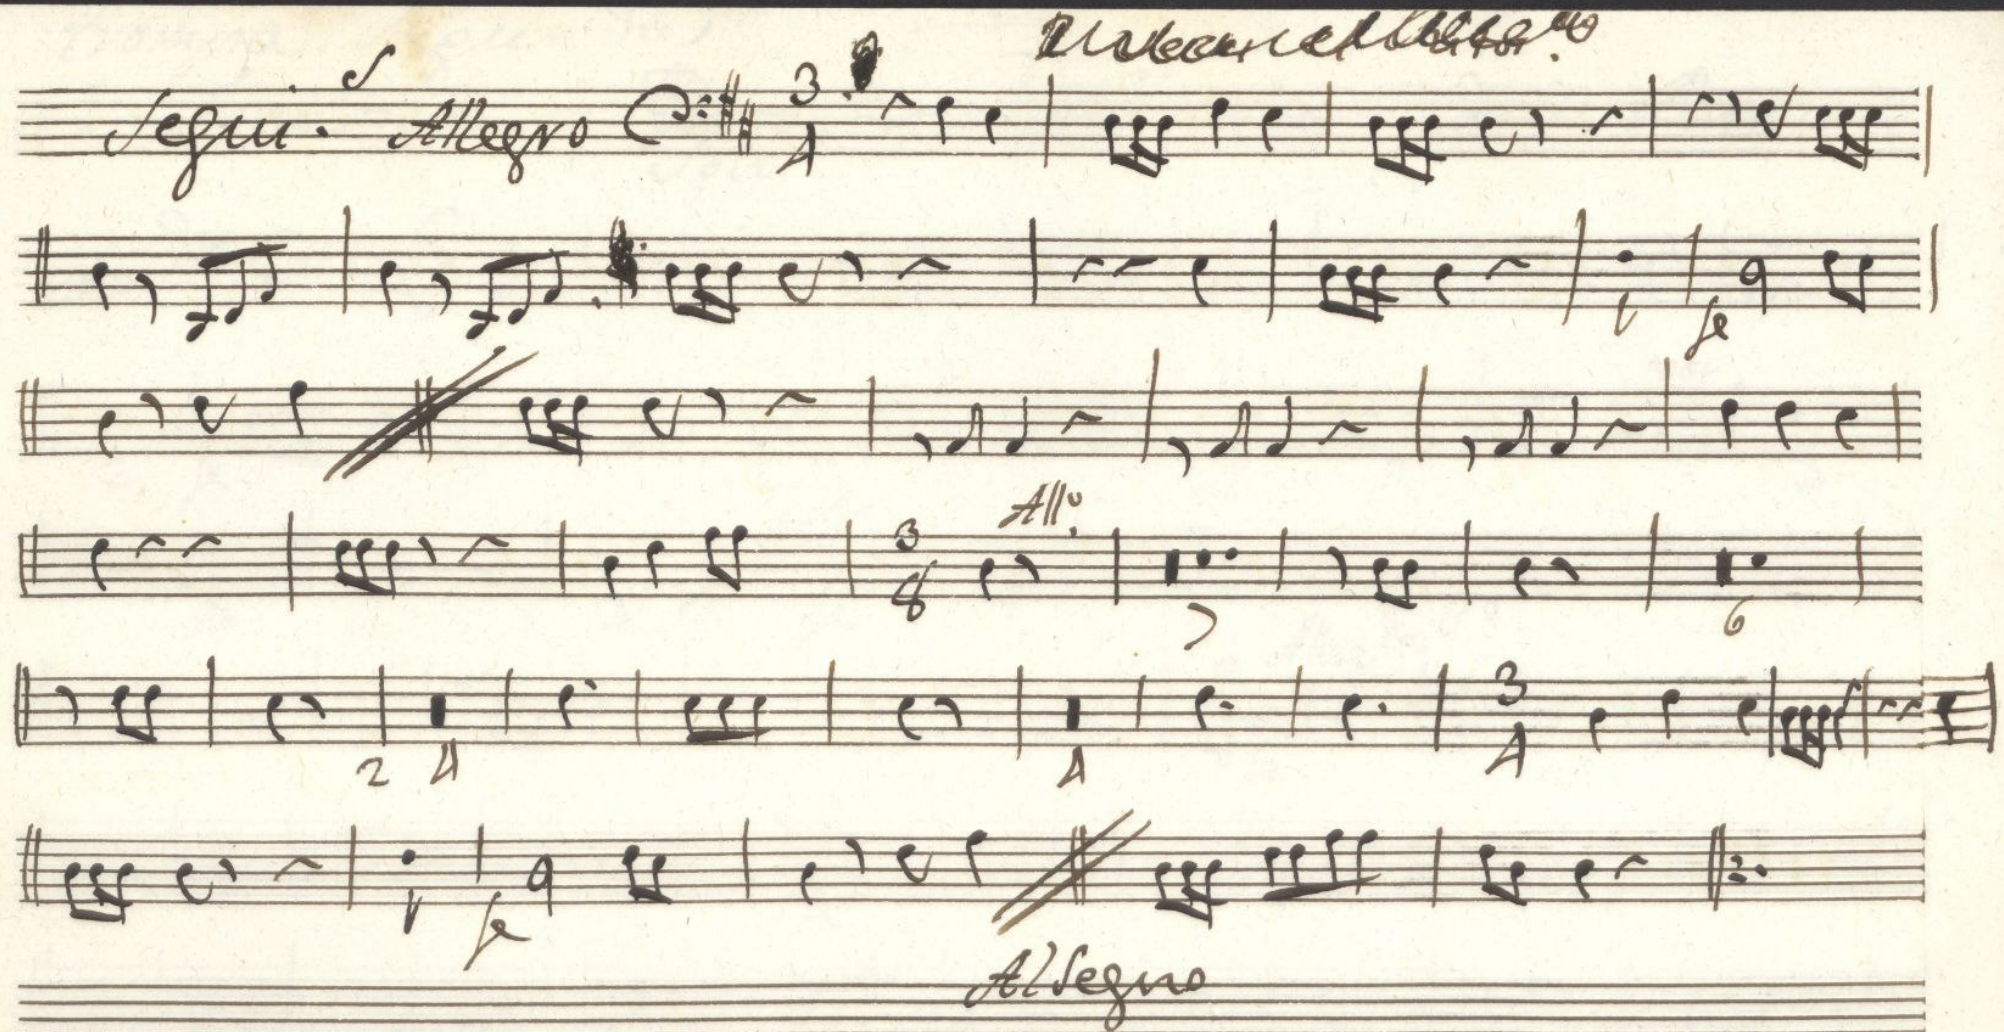 Segui. Allegro 3 4
fe
All.o 3 8
7 6
2 4 4 3 4
fe
Al Segno